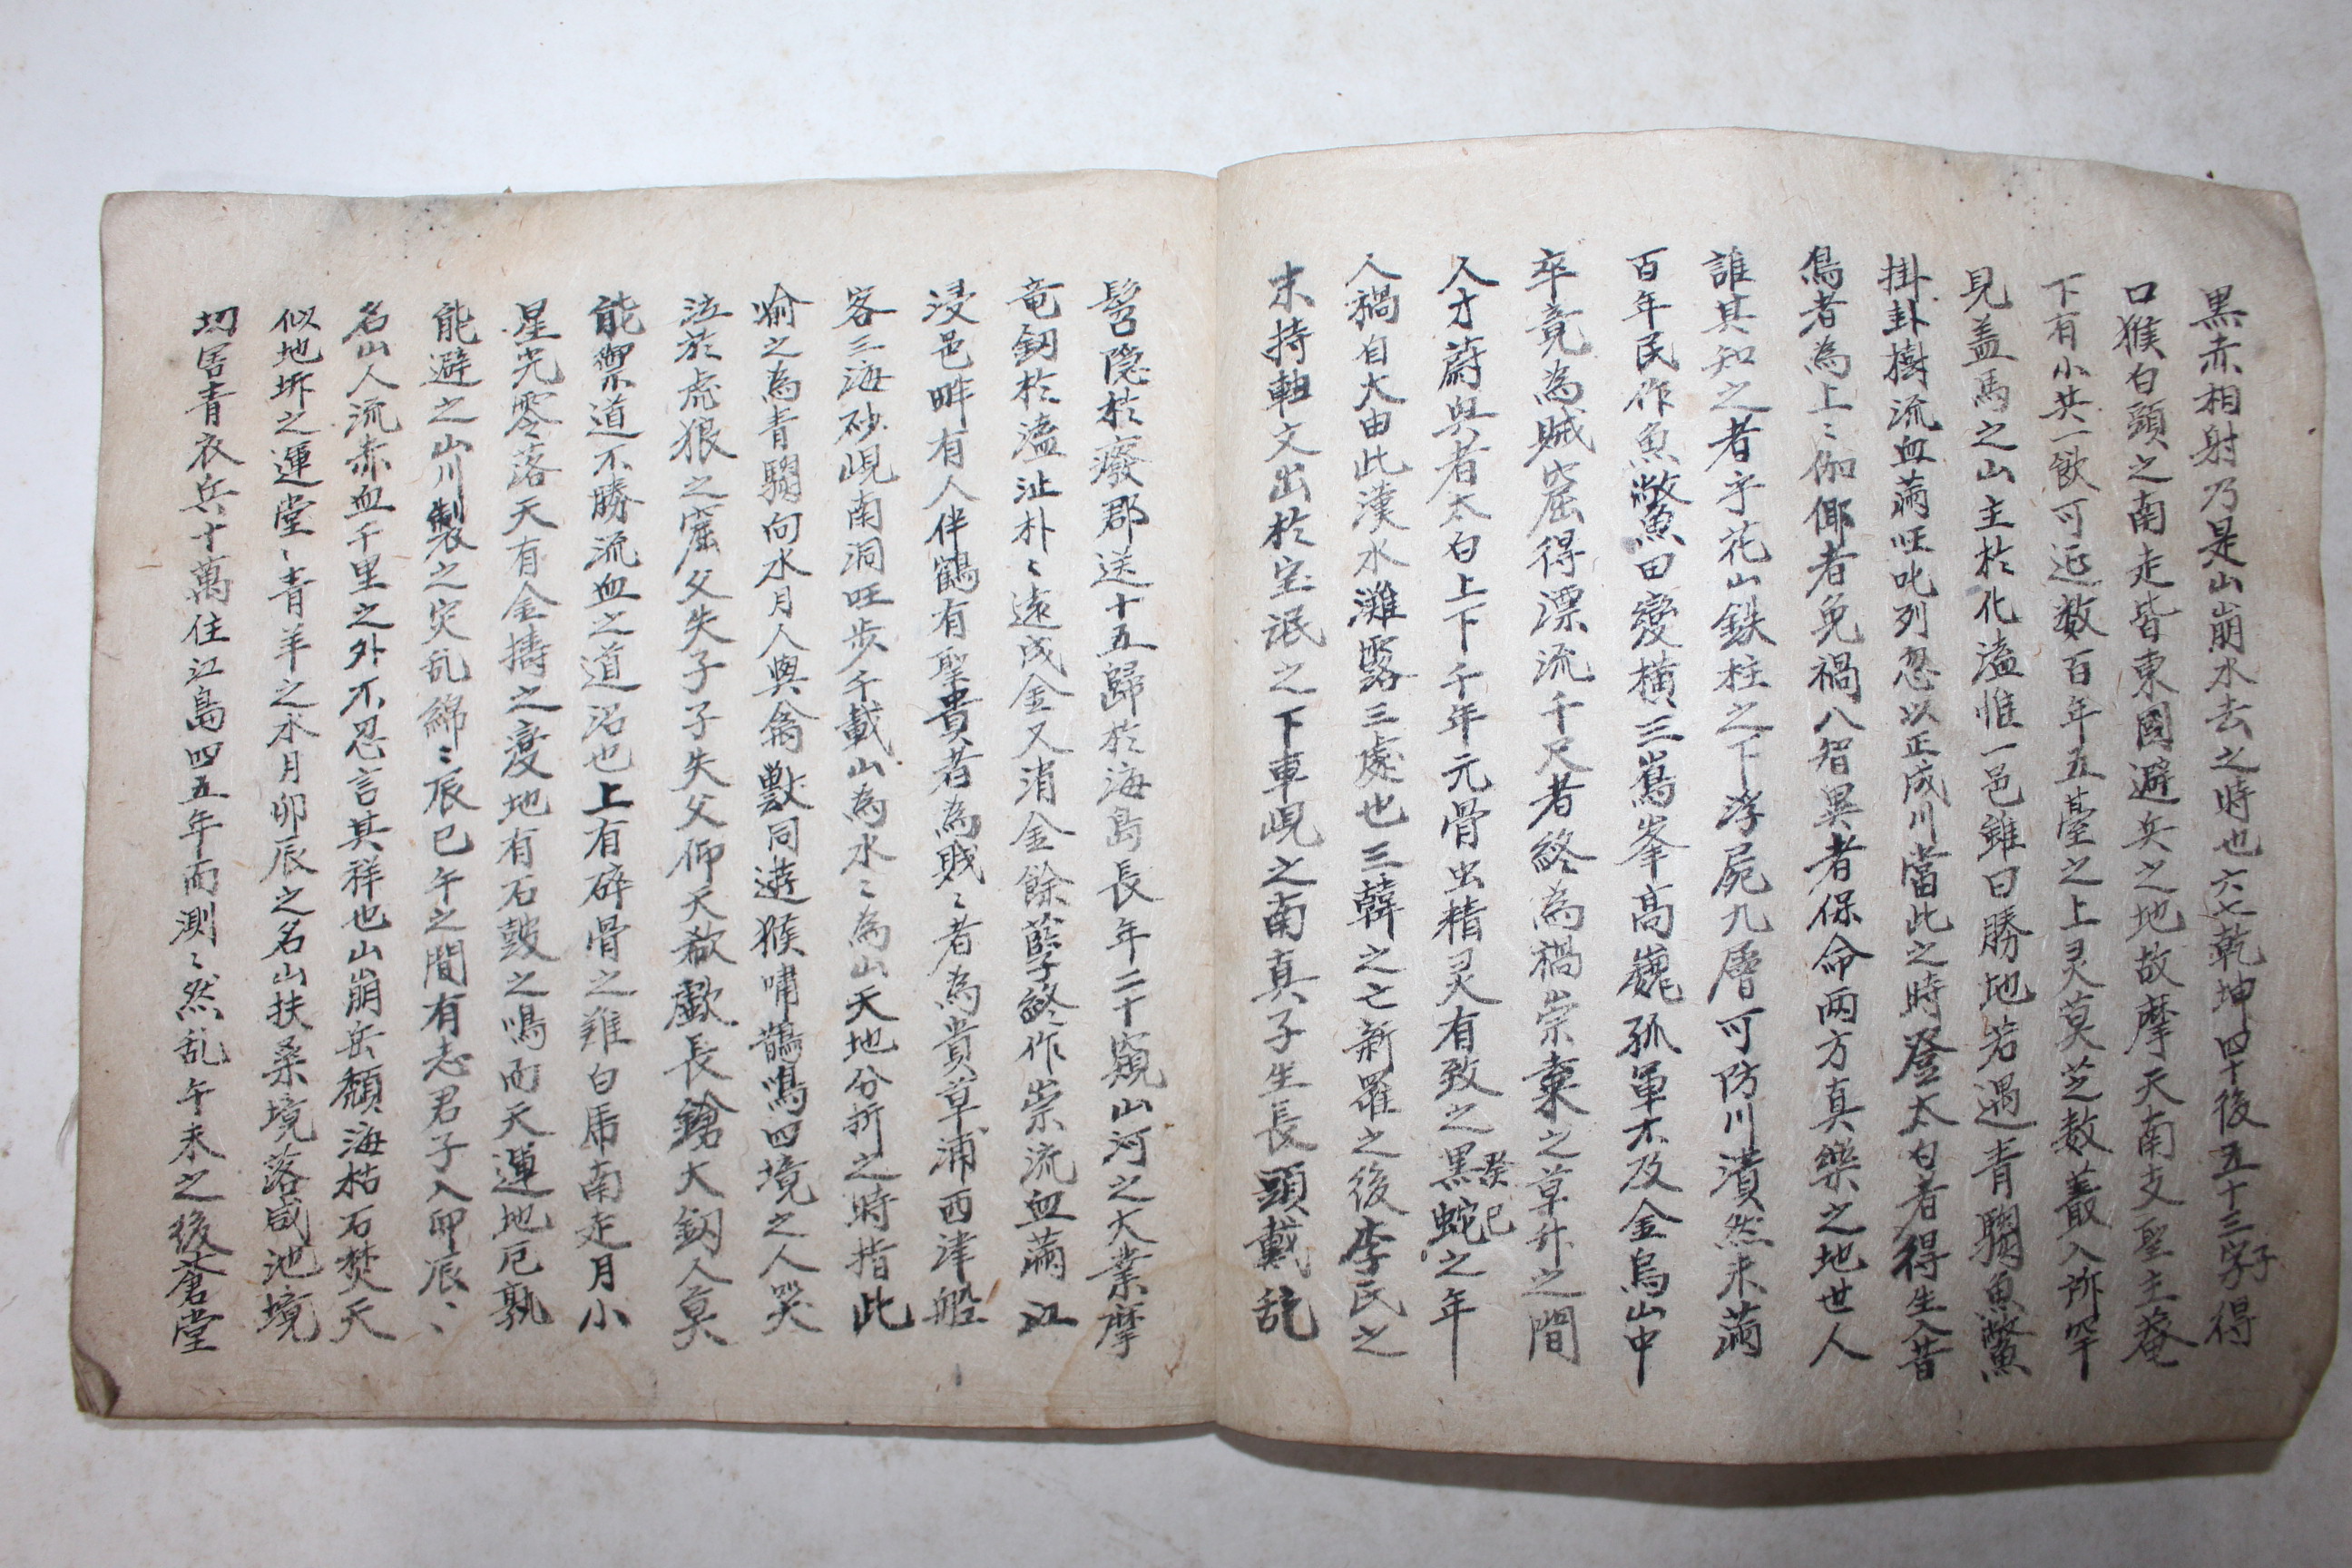 黒赤相射乃是山崩水去之時也六七乾坤四十後五十三字子得
口猴白頭之南走皆東國避兵之地故摩天南支聖主菴
下有小共一飲可延数百年五臺之上灵莫芝数叢入所罕
見盖馬之山主於化溘惟一邑雖曰勝地若遇青騶魚鱉
掛卦樹流血滿旺叱列忍以正成川當此之時登太白者得生入昔
鳥者為上〻伽倻者免禍入智異者保命两方真樂之地世人
誰其知之者乎花山鉄柱之下浮屍九層可防川潰然未滿
百年民作魚鱉田變横三嵩峯高巍孤軍不及金烏山中
卒竟為賊窟得漂流千尺者終為禍崇棄之草廾之間
人才蔚與者太白上下千年元骨出精灵有致之黒蛇癸巳之年
人禍自大由此漢水灘露三處也三韓之七新羅之後李氏之
末持軸文出於宝泯之下車峴之南真子生長頭戴乱
髫隠於癈郡送十五歸於海島長年二十窺山河之大業摩
竜釼於溘沚朴〻遠成金又消金餘孽終作崇流血滿江
浸邑畔有人伴鶴有聖貴者為賎〻者為貴草浦西津船
客三海砂峴南洞旺步千載山為水〻為山天地分折之時指此
喻之為青騶向水月人與禽獸同遊猴嘯鵲鳴四境之人哭
泣於虎狼之窟父失子子失父仰天欷歔長鎗大釼人莫
能禦道不勝流血之道沼也上有碎骨之難白馬南走月小
星光零落天有金擣之憂地有石皷之鳴而天運地厄孰
能避之山川製之灾乱綿〻辰巳午之間有志君子入卯辰〻
名山人流赤血千里之外不忍言其祥也山崩岳頽海枯石焚天
似地坼之運堂〻青羊之水月卯辰之名山扶桒境落咸池境
切害青衣兵十萬住江島四五年而測〻然乱午未之後蒼堂